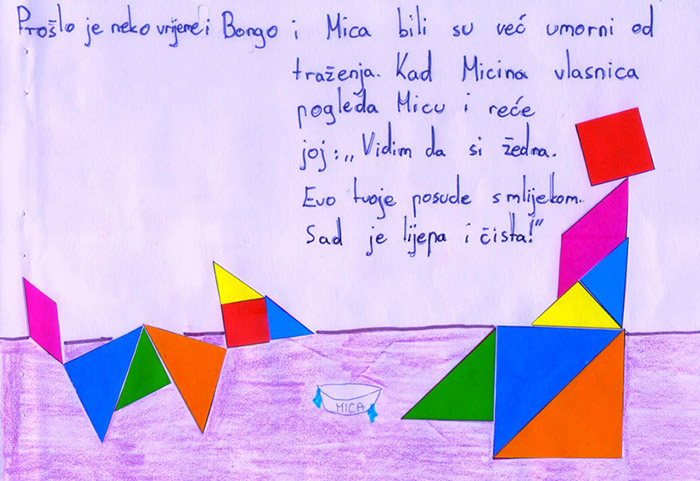 Prošlo je neko vrijeme i Bongo i Mica bili su već umorni od
traženja. Kad Micina vlasnica
pogleda Micu i reće
joj: „Vidim da si žedna.
Evo tvoje posude s mlijekom.
Sad je lijepa i čista!“
MICA